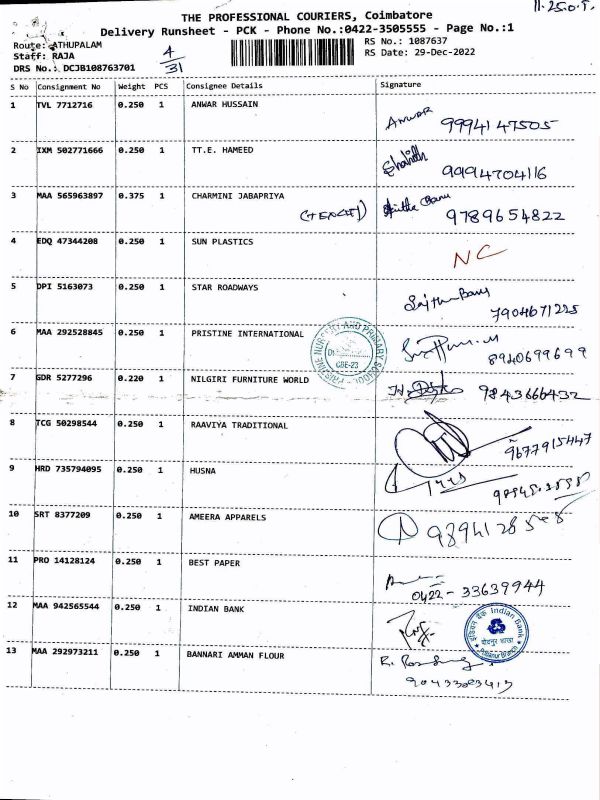 THE PROFESSIONAL COURIERS, Coimbatore
Delivery Runsheet - PCK - Phone No.:0422-3505555 - Page No.:1
Route: ATHUPALAM
Staff: RAJA
DRS No.: DCJB108763701
4/31
RS No.: 1087637
RS Date: 29-Dec-2022
S No Consignment No Weight PCS Consignee Details Signature
1 TVL 7712716 0.250 1 ANWAR HUSSAIN Anwar 9994147505
2 IXM 502771666 0.250 1 TT.E. HAMEED 9994704116
3 MAA 565963897 0.375 1 CHARMINI JABAPRIYA Banu 9789654822
4 EDQ 47344208 0.250 1 SUN PLASTICS NC
5 DPI 5163073 0.250 1 STAR ROADWAYS 7904671225
6 MAA 292528845 0.250 1 PRISTINE INTERNATIONAL 8940699699
NURSERY AND PRIMARY SCHOOL
CBE-23
7 GDR 5277296 0.220 1 NILGIRI FURNITURE WORLD 9843666432
8 TCG 50298544 0.250 1 RAAVIYA TRADITIONAL 9677915447
9 HRD 735794095 0.250 1 HUSNA
10 SRT 8377209 0.250 1 AMEERA APPARELS
11 PRO 14128124 0.250 1 BEST PAPER 0422-33639944
12 MAA 942565544 0.250 1 INDIAN BANK
इंडियन बैंक Indian Bank
पोदनुर शाखा
Podanur Branch
13 MAA 292973211 0.250 1 BANNARI AMMAN FLOUR